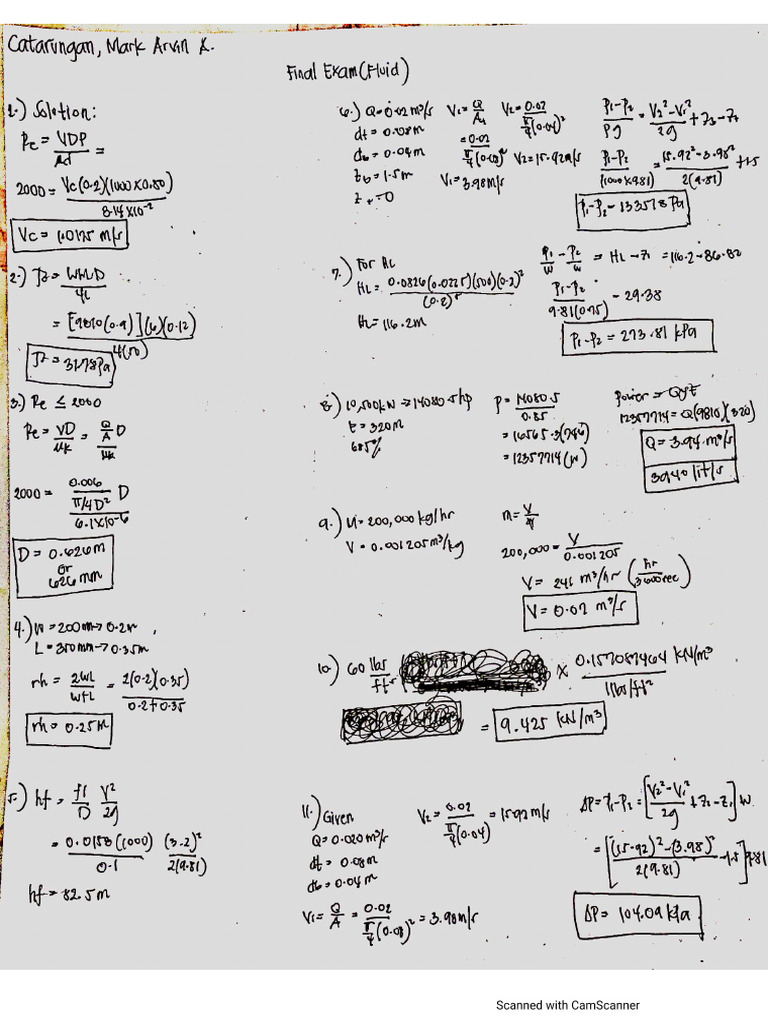 Catarungan, Mark Arvin K.
Final Exam (Fluid)
1.) Solution:
Re = VDP / μd =
2000 = Vc(0.2)(1000 x 0.80) / 8.14 x 10⁻²
Vc = 1.0175 m/s
2.)
= [9810(0.9)](6)(0.12) / 4(50)
= 31.78 Pa
3.) Re ≤ 2000
Re = VD / μk = Q/A D / μk
2000 = 0.006 / π/4 D² D / 6.1x10⁻⁶
D = 0.626 m
or
626 mm
4.) W = 200 mm → 0.2m
L = 350mm → 0.35m
rh = 2WL / W+L = 2(0.2)(0.35) / 0.2+0.35
rh = 0.25 m
5.) hf = fl / D V² / 2g
= 0.0158 (1000) / 0.1 (3.2)² / 2(9.81)
hf = 82.5 m
6.) Q = 0.02 m³/s
dt = 0.08m
db = 0.04m
zb = 1.5m
V1 = Q / A1
= 0.02 / π/4 (0.08)²
V1 = 3.98 m/s
V2 = 0.02 / π/4 (0.04)²
V2 = 15.92 m/s
P1-P2 / ρg = V2² - V1² / 2g + z2 - z1
P1-P2 / (1000 x 9.81) = 15.92² - 3.98² / 2(9.81) + 1.5
P1-P2 - 133518 Pa
7.) For HL
HL = 0.0826(0.0225)(500)(0.2)² / (0.2)⁵
HL = 116.2m
P1/W - P2/W = HL - z1 = 116.2 - 86.82
P1-P2 / 9.81(0.95) - 29.38
P1-P2 = 273.81 kPa
8.) 10,500kW → 14080.5 hp
t = 320m
P = 14080.5 / 0.85
= 16565.3(746)
= 12357714 (W)
Power = QγE
12357714 = Q(9810)(320)
Q = 3.94 m³/s
3940 lit/s
9.) M = 200,000 kg/hr
V = 0.001205 m³/kg
200,000 = V / 0.001205
V = 241 m³/hr (hr / 3600sec)
V = 0.07 m³/s
10.) 60 lbs / ft³ x 0.157087464 kN/m³ / 1 lbs/ft³
= 9.425 kN/m³
11.) Given
Q = 0.020m³/s
dt = 0.08m
db = 0.04m
V1 = Q / A = 0.02 / π/4 (0.08)² = 3.98 m/s
V2 = 0.02 / π/4 (0.04) = 15.92 m/s
ΔP = P1-P2 = [V2² - V1² / 2g + z2 - z1] W
= [(15.92)² - (3.98)² / 2(9.81) - 1.5] 9.81
ΔP = 104.09 kPa
Scanned with CamScanner